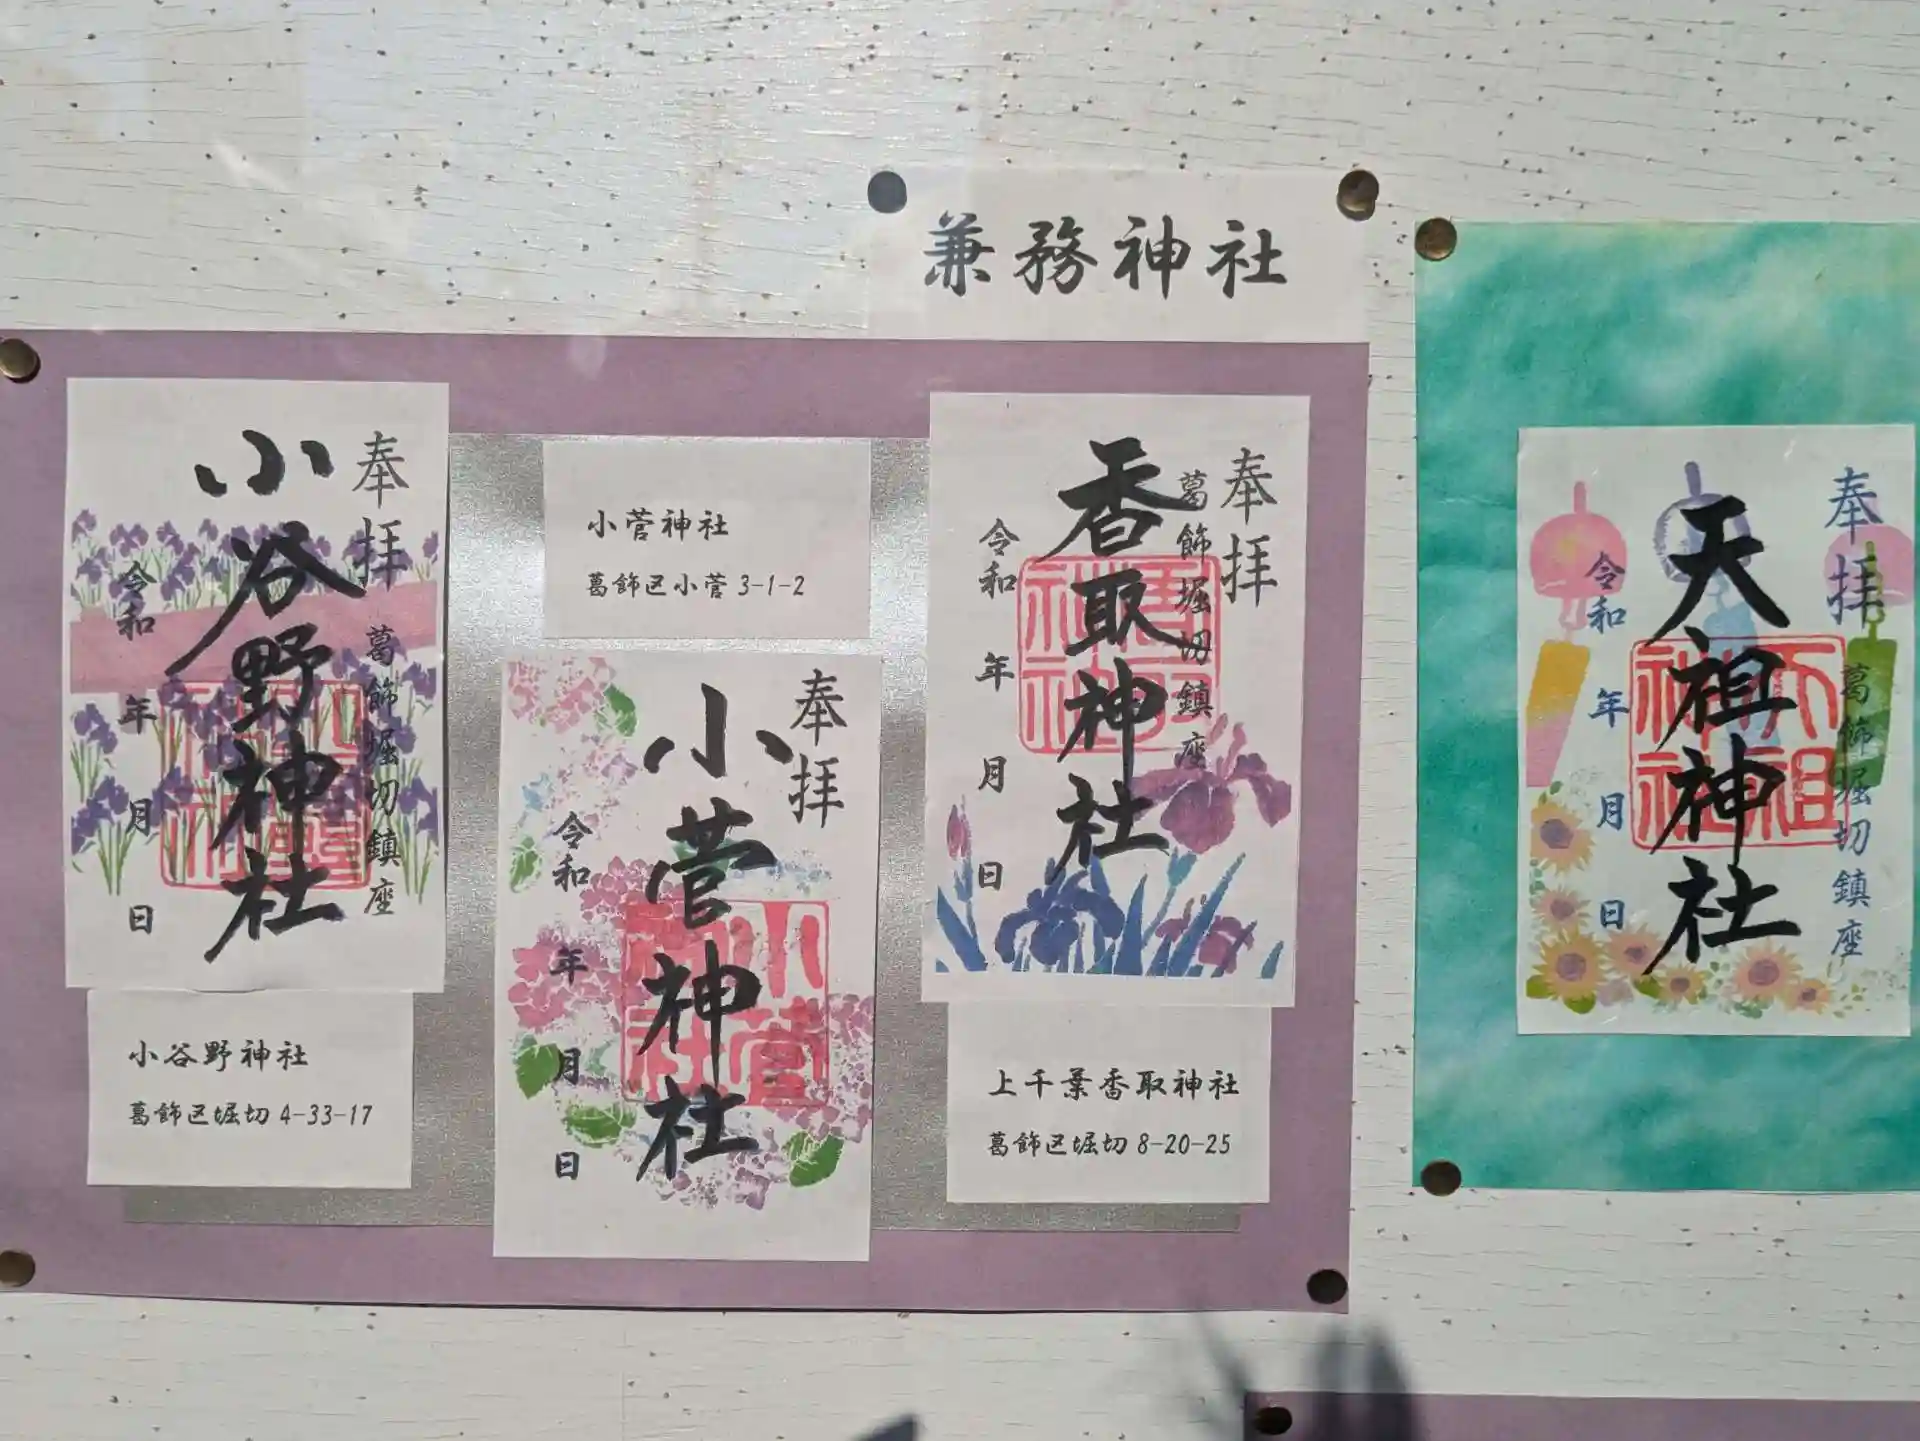 兼務神社
奉拝
葛飾堀切鎮座
小谷野神社
令和 年 月 日
小谷野神社
葛飾区堀切 4-33-17
小菅神社
葛飾区小菅 3-1-2
奉拝
小菅神社
令和 年 月 日
小菅
神社
奉拝
葛飾堀切鎮座
香取神社
令和 年 月 日
上千葉香取神社
葛飾区堀切 8-20-25
奉拝
葛飾堀切鎮座
天祖神社
令和 年 月 日
天祖
神社